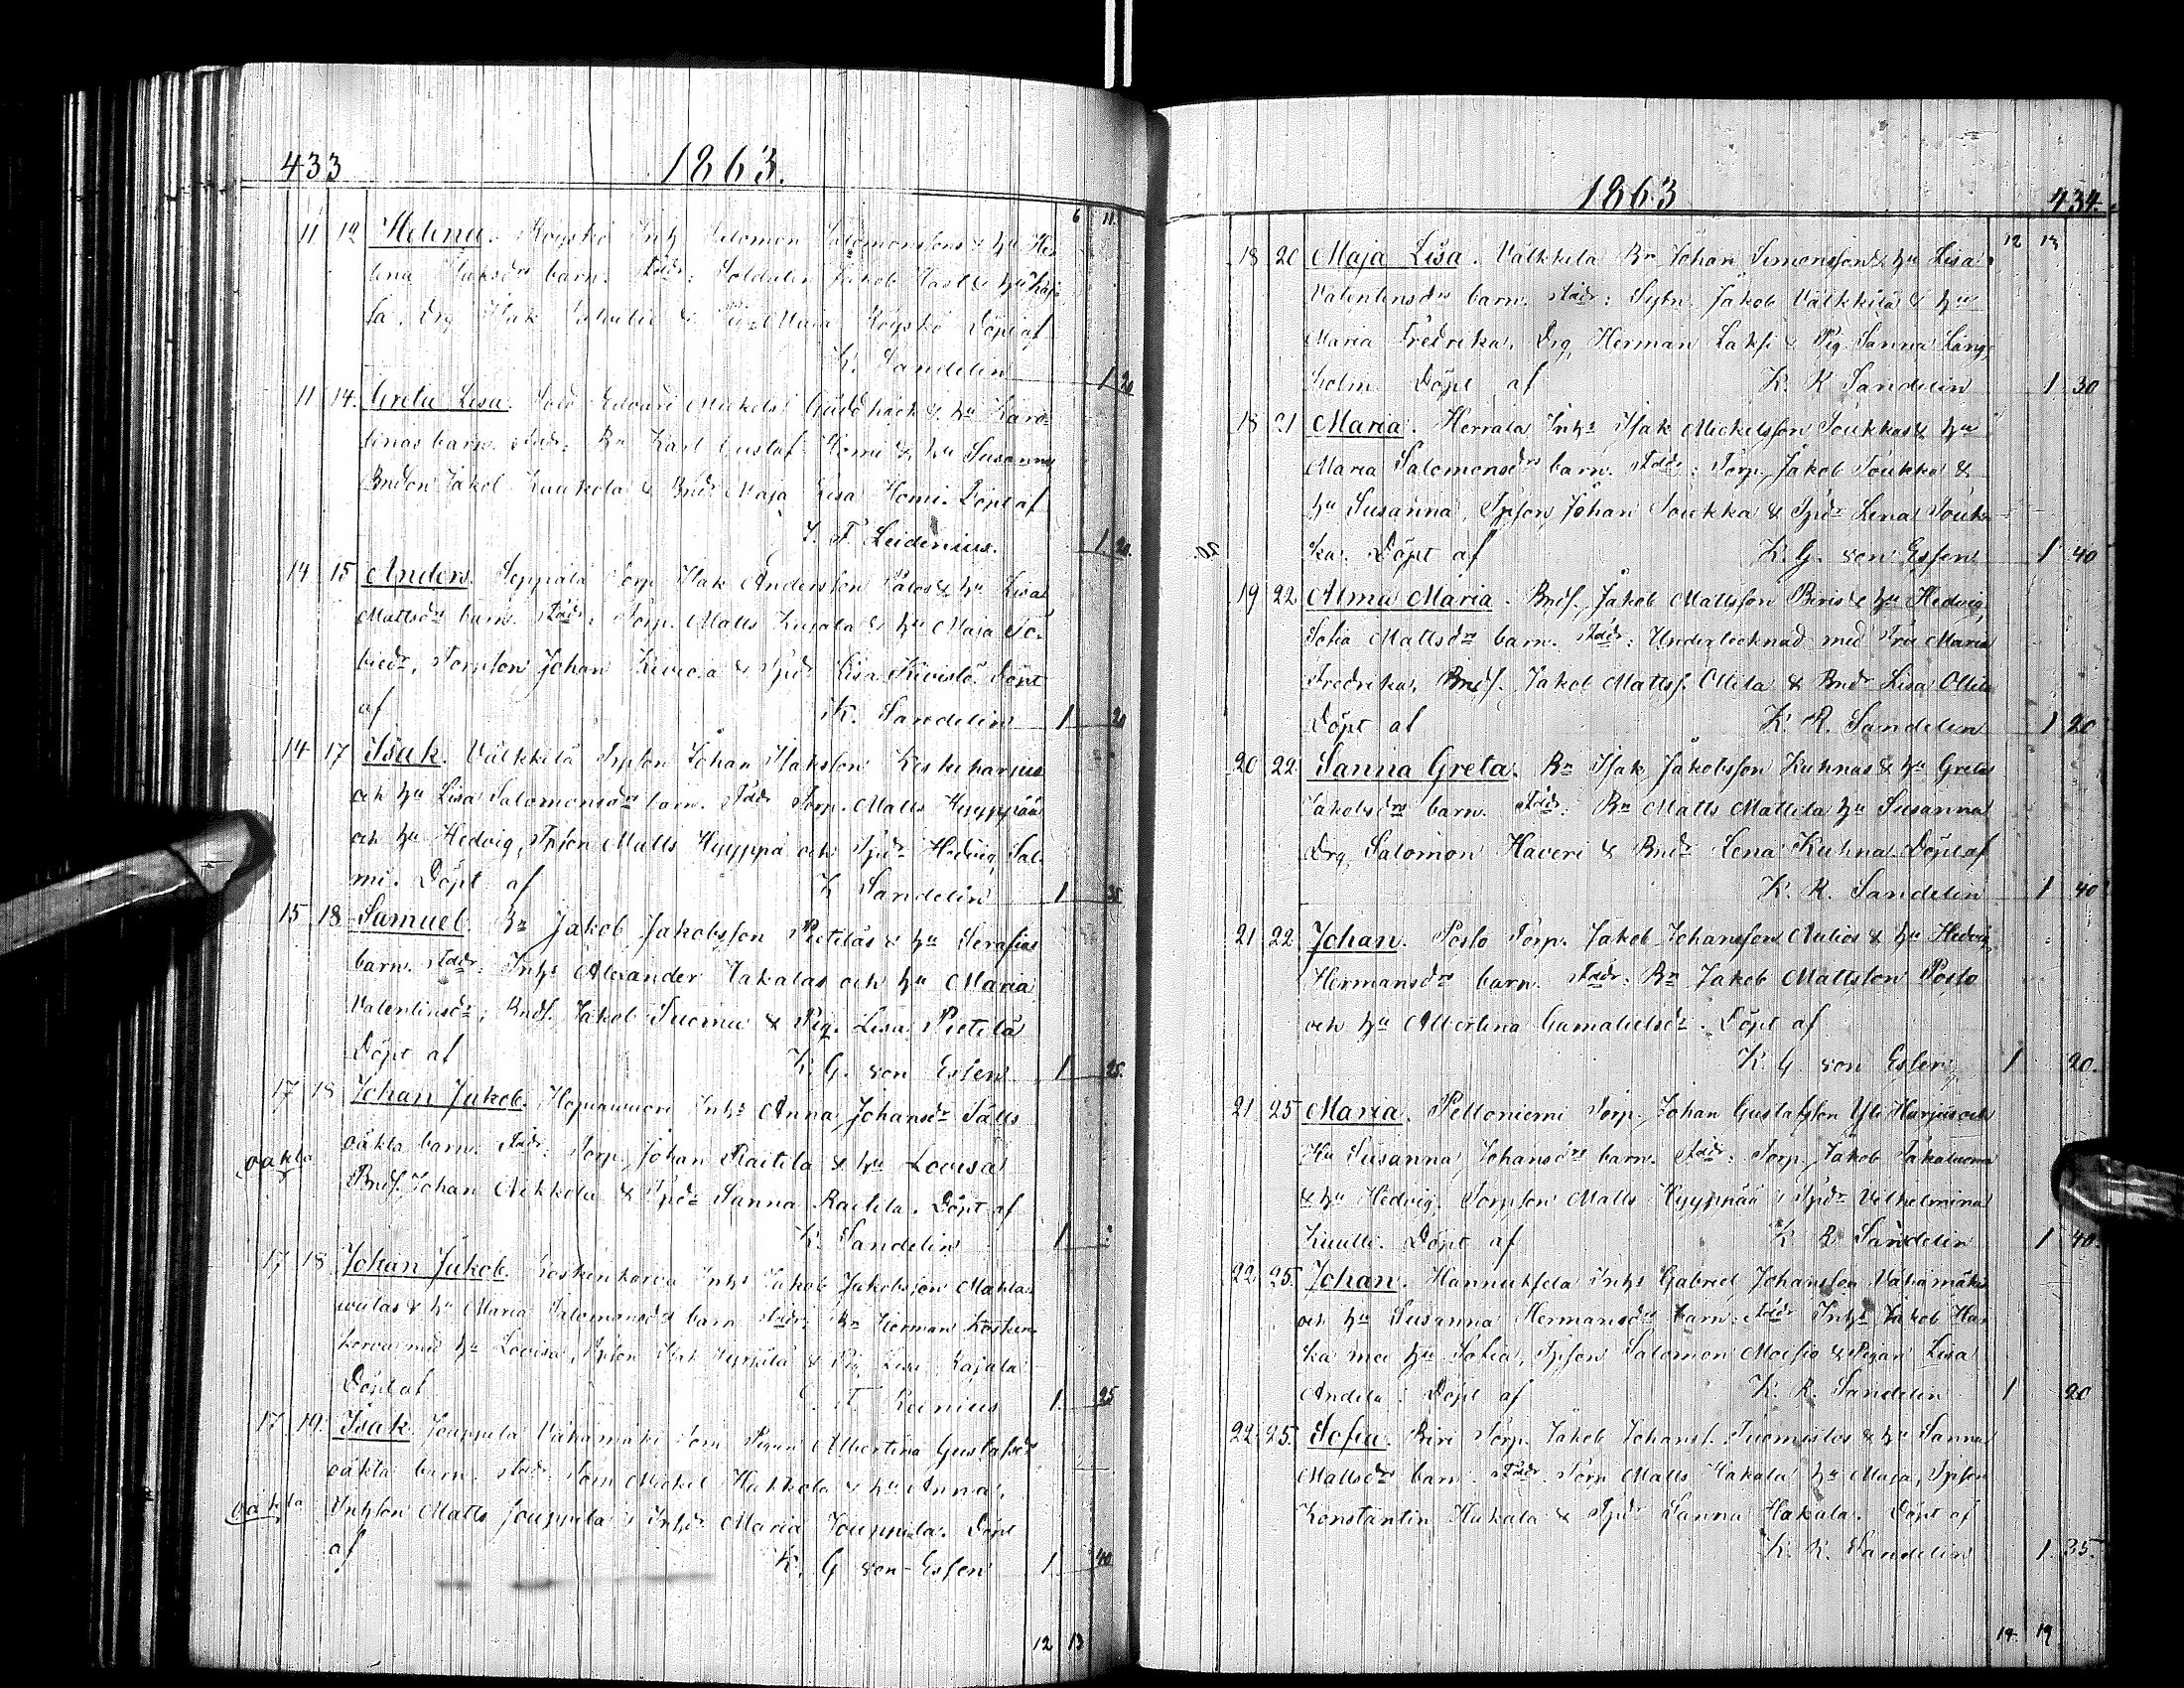 433 1863.
6 11.
11 12 Helena. Inh Salomon Salomonssons & hu He-
lena barn. Fadr: Soldaten Jakob Hast & hu Kaj-
sa. Drg Isak & Maja Köyskö Döpt af
K. Sandelin 1 20
11 14. Greta Lisa. Sold Edvard Mickels & hu Karo-
linas barn. Fadr: Bn Karl Gustaf Homi & hu Susanna
Bndson Jakob Kaukola & Bndr Maja Lisa Homi. Döpt af
J. F. Leidenius. 1 20.
14 15 Anders. Seppälä Torp Isak Andersson Palos & hu Lisa
Mattsdrs barn. Fadr: Torp. Matts Kujala & hu Maja To-
biedr, Torpson Johan & Tpdr Lisa Kivistö. Döpt
af K. Sandelin 1 20
14 17 Isak. Välkkilä Tpson Johan Isaksson Keskiharjus
och hu Lisa Salomonsdrs barn. Fadr Torp. Matts Hyyppää
och hu Hedvig, Tpson Matts Hyyppä och Tpdr Hedvig Sal-
mi. Döpt af K Sandelin 1 35
15 18 Samuel. Bn Jakob Jakobsson Pietiläs & hu Serafias
barn. Fadr: Inhs Alexander Hakalas och hu Maria
Valentinsdr; Bndf. Jakob Tuomu & Pig. Lisa Pietilä
Döpt af K. G. von Essen 1 25.
17 18 Johan Jakob. Hopiawuori Inhs Anna Johansdr Salts
oäkta oäkta barn. Fadr: Torp. Johan Raitila & hu Lovisa
Bndf. Johan Nikkola & Tpdr Sanna Raitila. Döpt af
K. Sandelin 1 :
17 18 Johan Jakob. Koskenkorva Inhs Jakob Jakobsson Mahla-
wulas & hu Maria Salomonsdrs barn Fadr: Bn Herman Kosken-
korva med hu Lovisa, Tpson Isak & Pig Lisa Kajala
Döpt af T. Reinius 1. 25
17 19. Isak. Jouppila Vähämäki Torn Pigan Albertina Gustafsdrs
oäkta oäkta barn. Fadr: Torn Mickel Hakkola & hu Anna,
Inhson Matts Jouppila & Inhdr Maria Jouppila. Döpt
af K. G von Essen 1. 40
12 13
1863 434.
12 13
18 20 Maja Lisa. Välkkilä Bn Johan Simonsson & hu Lisa
Valentinsdrs barn. Fadr: Sytn. Jakob Välkkilä & hu
Maria Fredrika, Drg, Herman Laksi & Pig Sanna Lång-
holm. Döpt af K. R Sandelin 1 30
18 21 Maria. Herrala Inhs Isak Mickelsson Toukkas & hu
Maria Salomonsdrs barn. Fadr: Torp. Jakob Toukka &
hu Susanna, Tpson Johan Toukka & Tpdr Lena Touk-
ka. Döpt af K. G. von Essen 1 40
20.
19 22 Alma Maria. Bndf. Jakob Mattsson Biris & hu Hedvig
Sofia Mattsdrs barn. Fadr: Undertecknad med Fru Maria
Fredrika, Bndf. Jakob Mattsf. Ollila & Bndr Lisa Ollila
Döpt af K. R. Sandelin 1 20
20 22 Sanna Greta. Bn Isak Jakobsson Kuhnas & hu Greta
Jakobsdrs barn. Fadr: Bn Matts Mattila hu Susanna
Drg, Salomon Haveri & Bndr Lena Kuhna. Döpt af
K. R. Sandelin 1 40
21 22 Johan. Posto Torp. Jakob Johansson Aulios & hu Hedvig
Hermansdrs barn. Fadr: Bn Jakob Mattsson Posto
och hu Albertina Gamalielsdr. Döpt af
K. G von Essen 1 20.
21 25 Maria. Peltoniemi Torp. Johan Gustafsson Yli Harjus och
Hu Susanna Johansdrs barn. Fadr: Torp. Jakob
& hu Hedvig. Torpson Matts Hyyppää & Tpdr Vilhelmina
Döpt af K R Sandelin 1 40.
22 25. Johan. Hannuksela Inhs Gabriel Johansson Vähämäkis
och hu Susanna Hermansdrs barn: Fadr Inhs Jakob Har-
ka med hu Sofia, Tpson Salomon Moisio & Pigan Lisa
Andila. Döpt af K. R. Sandelin 1 20
22. 25. Sofia. Biri Torp. Jakob Johansf. Tuomistos & hu Sanna
Mattsdrs barn. Fadr. Torp Matts Hakala hu Maja, Tpson
Konstantin Hakala & Tpdr Sanna Hakala. Döpt af
K. R. Sandelin 1. 35.
14 19